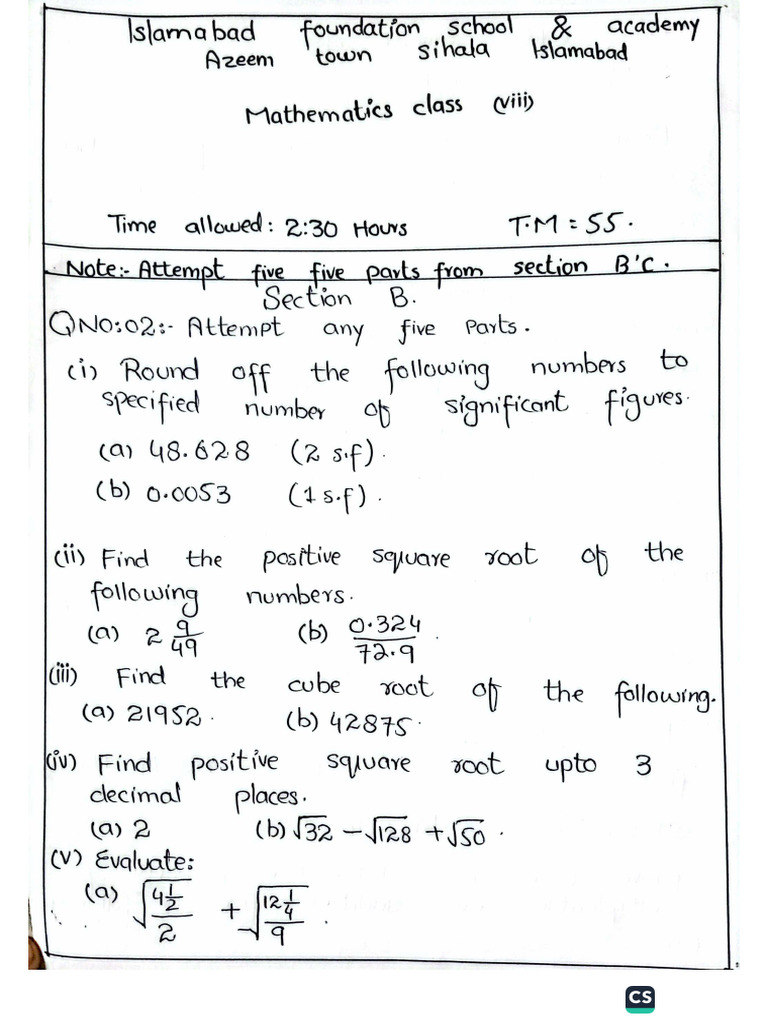 Islamabad foundation school & academy
Azeem town sihala Islamabad
Mathematics class (viii)
Time allowed: 2:30 Hours T.M = 55.
Note:- Attempt five five parts from section B'C.
Section B.
QNO:02:- Attempt any five parts.
(i) Round off the following numbers to
specified number of significant figures.
(a) 48.628 (2 s.f).
(b) 0.0053 (1 s.f).
(ii) Find the positive square root of the
following numbers.
(a) 2 9/49 (b) 0.324/72.9.
(iii) Find the cube root of the following.
(a) 21952. (b) 42875.
(iv) Find positive square root upto 3
decimal places.
(a) 2 (b) √32 - √128 + √50.
(v) Evaluate:
(a) √(4 1/2 / 2) + √(12 1/4 / 9).
CS